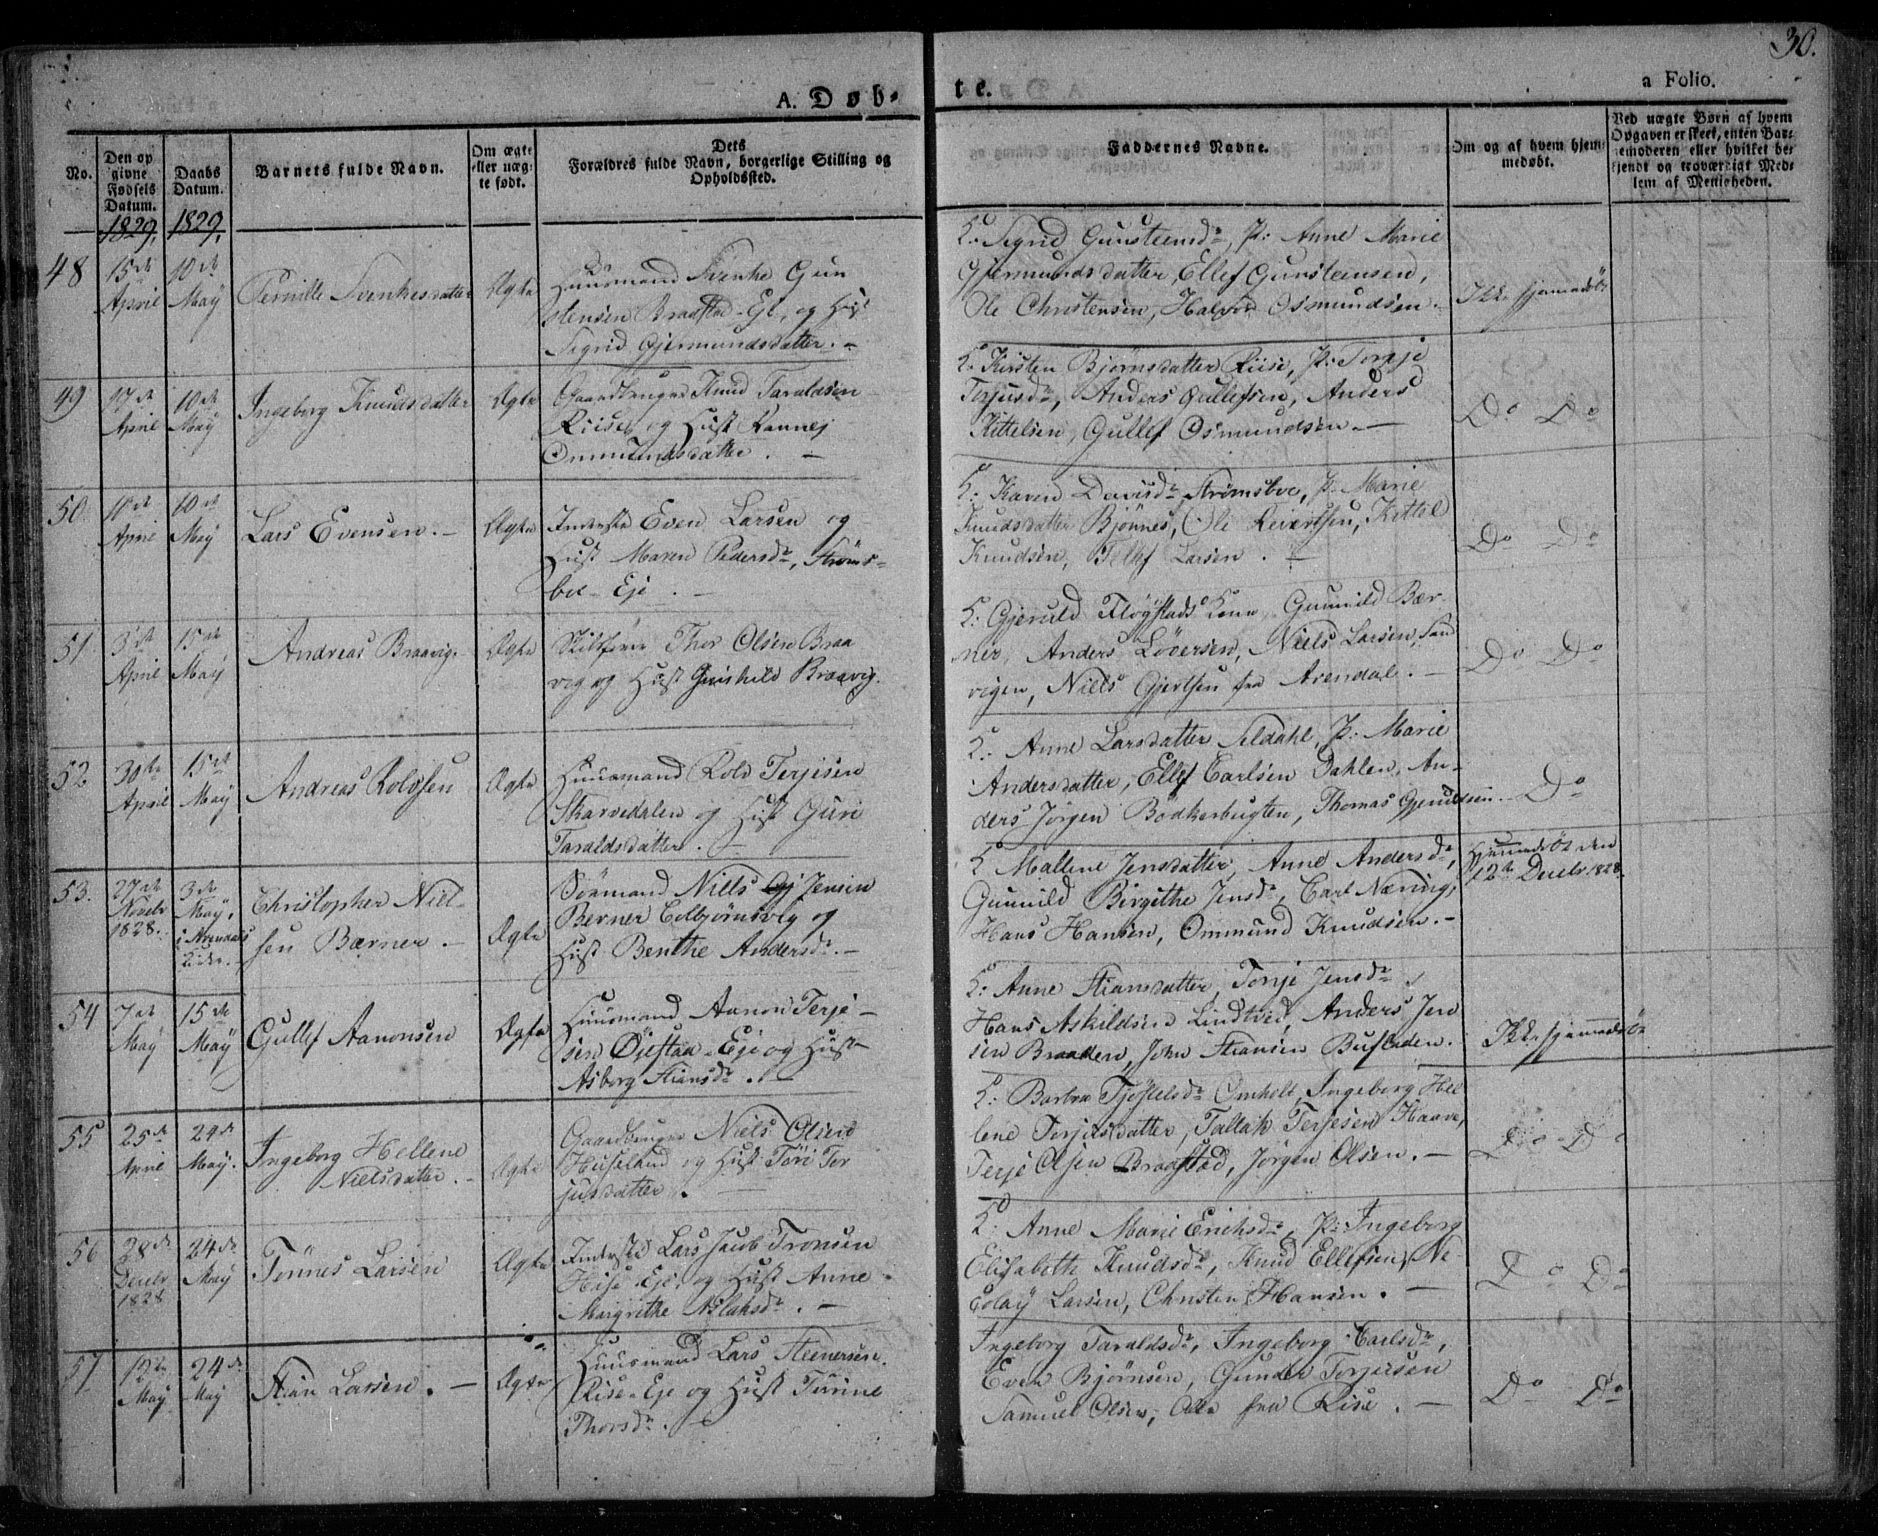 30.
A. Døb-
te.
a Folio.
No.
Den op
givne
Fødsels
Datum.
1829,
Daabs
Datum.
1829,
Barnets fulde Navn.
Om ægte
eller uæg-
te født.
Dets
Forældres fulde Navn, borgerlige Stilling og
Opholdssted.
Faddernes Navne.
Om og af hvem hjem-
medøbt.
Ved uægte Børn af hvem
Opgaven er skeet, enten Bar-
nemoderen eller hvilket be-
kjendt og troværdigt Med-
lem af Menigheden.
48
15de
April
10de
May
Pernille Svenkesdatter
Ægte
Huusmand Svenke Gun
stensen Braastad-Eje, og Hust
Sigrid Gjermundsdatter. -
K: Sigrid Gunsteensdr, P: Anne Marie
Gjermundsdatter, Ellef Gunsteensen,
Ole Christensen, Halvor Osmundsen.
Ikke hjemmedöbt
49
17de
April
10de
May
Ingeborg Knudsdatter
Ægte
Gaardbruger Knud Taraldsen
Riise, og Hust Rannej
Ommundsdatter. -
K. Kirsten Bjørnsdatter Riise, P: Torgje
Terjusdr, Anders Gullefsen, Anders
Kittelsen, Gullef Osmundsen. -
Do Do
50
10de
April
10de
May
Lars Evensen. -
Ægte
Inderste Even Larsen og
Hust Maren Pedersdr, Strøms-
boe-Eje. -
K: Karen Davidsdr Strømsboe, P. Marie
Knudsdatter Bjønnes, Ole Leiertsen, Kittel
Knudsen, Tellef Larsen. -
Do Do
51
3die
April
15de
May
Andreas Braavig.
Ægte
Skibsfører Thor Olsen Braa
vig og Hust Gunhild Braavig.
K: Gjeruld Fløgstads Kone, Gunnild Bær-
ner, Anders Løversen, Niels Larsen, Sand
vigen, Niels Gjertsen fra Arendal. -
Do Do
52
30te
April
15de
May
Andreas Rolvsen
Ægte
Huusmand Rolv Terjesen
Skarvedalen og Hust Guri
Taraldsdatter. -
K: Anne Larsdatter Seldahl, P: Marie
Andersdatter, Ellef Carlsen Dahlen, An-
ders Jørgen Bödkerbugten, Thomas Gjeruldsen.
Do
53.
27de
Novebr
1828.
3de
May,
i Arendals
Kirke.
Christopher Niel-
sen Bærner. -
Ægte
Sømand Niels Gj Jensen
Berner Colbjørnsvig og
Hust Benthe Andersdr. -
K Mallene Jensdatter, Anne Andersdr,
Gunnild Birgithe Jensdr, Carl Næring,
Hans Hansen, Ommund Knudsen. -
Hjemmedöbt den
12te Decebr 1828.
54
7de
May
15de
May
Gullef Aanonsen
Ægte
Huusmand Aanon Terje-
sen Øjestad-Eje og Hust
Asborg Stiansdr. -
K: Anne Stiansdatter, Tonje Jensdr,
Hans Askildsen Lindtvid, Anders Jen
sen Braaden, John Stiansen Busleden.
Ikke hjemmedöbt
55
25de
April
24de
May.
Ingeborg Hellene
Nielsdatter. -
Ægte
Gaardbruger Niels Olsen
Huseland og Hust Tori Ter
jusdatter. -
K: Barbro Tjøstelsdr Omholt, Ingeborg Hel
lene Terjusdatter, Tallak Terjesen Haave,
Terje Olsen Braastad, Jørgen Olsen. -
Do Do
56
28de
Decebr
1828
24de
May
Tönnes Larsen
Ægte
Inderste Lars Jacob Tronsen
Heise-Eje, og Hust Anne
Margrethe Aslaksdr. -
K: Anne Marie Erichsdr, P: Ingeborg
Elisabeth Knudsdr, Knud Ellefsen, Ne-
colay Larsen, Christen Hansen. -
Do Do
57
12te
May
24de
May
Stian Larsen. -
Ægte
Huusmand Lars Steenersen
Riise-Eje og Hust Torine
Thorsdr. -
Ingeborg Taraldsdr, Ingeborg Carlsdr,
Even Bjørnsen, Gunder Terjesen
Samuel Olsen, Alle fra Riise. -
Do Do